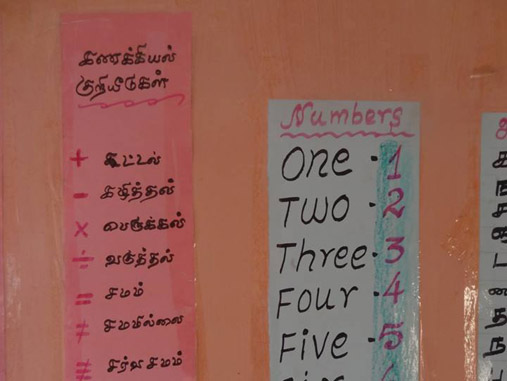 கணக்கியல்
குறியீடுகள்
+ கூட்டல்
- கழித்தல்
× பெருக்கல்
÷ வகுத்தல்
= சமம்
≠ சமமில்லை
≡ சர்வ சமம்
Numbers
One · 1
Two · 2
Three · 3
Four · 4
Five · 5